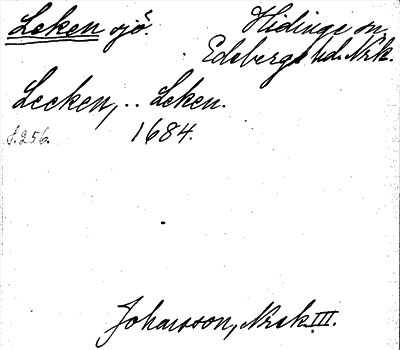 Leken sjö. Hidinge sn,
Edsbergs hd. Nrk.
Lecken, .. Leken.
s. 256. 1684.
Johansson, Nrke III.